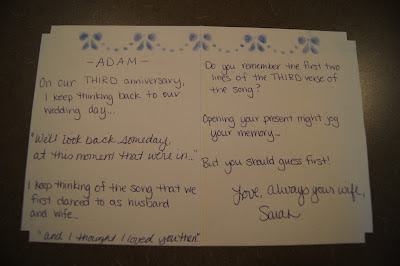 - ADAM -
On our THIRD anniversary,
I keep thinking back to our
wedding day...
"We'll look back someday,
at this moment that we're in.."
I keep thinking of the song that we
first danced to as husband
and wife..
"and I thought I loved you then."
Do you remember the first two
lines of the THIRD verse of
the song?
Opening your present might jog
your memory...
But you should guess first!
Love, always your wife,
Sarah